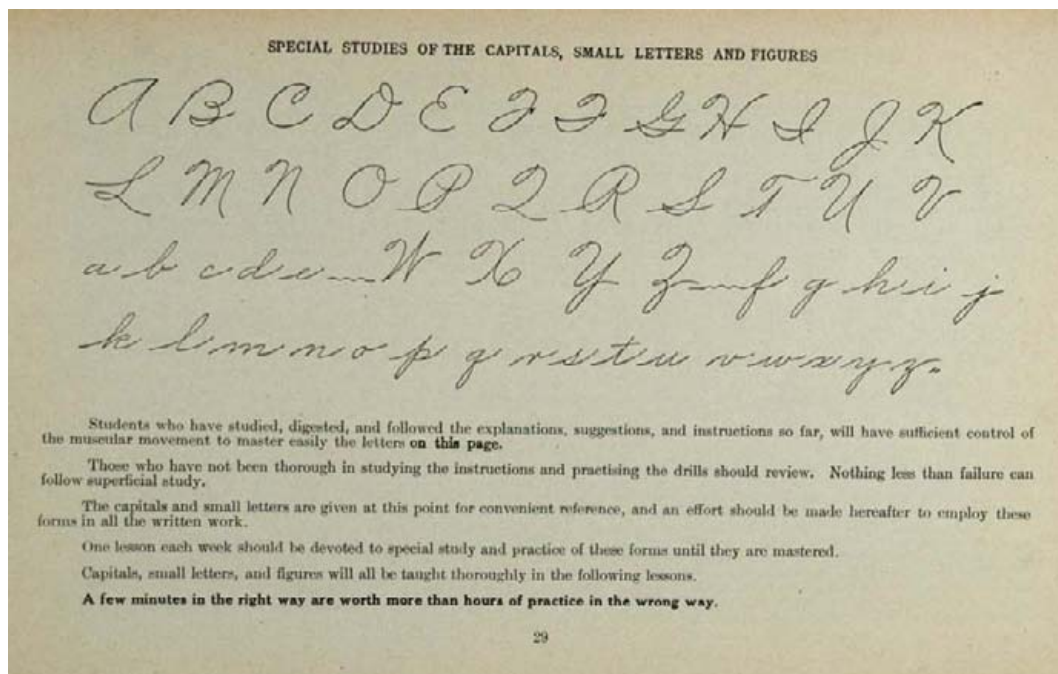 SPECIAL STUDIES OF THE CAPITALS, SMALL LETTERS AND FIGURES
A B C D E F F G H I J K
L M N O P Q R S T U V
a b c d e W X Y Z f g h i j
k l m n o p q r s t u v w x y z
Students who have studied, digested, and followed the explanations, suggestions, and instructions so far, will have sufficient control of
the muscular movement to master easily the letters on this page.
Those who have not been thorough in studying the instructions and practising the drills should review. Nothing less than failure can
follow superficial study.
The capitals and small letters are given at this point for convenient reference, and an effort should be made hereafter to employ these
forms in all the written work.
One lesson each week should be devoted to special study and practice of these forms until they are mastered.
Capitals, small letters, and figures will all be taught thoroughly in the following lessons.
A few minutes in the right way are worth more than hours of practice in the wrong way.
29